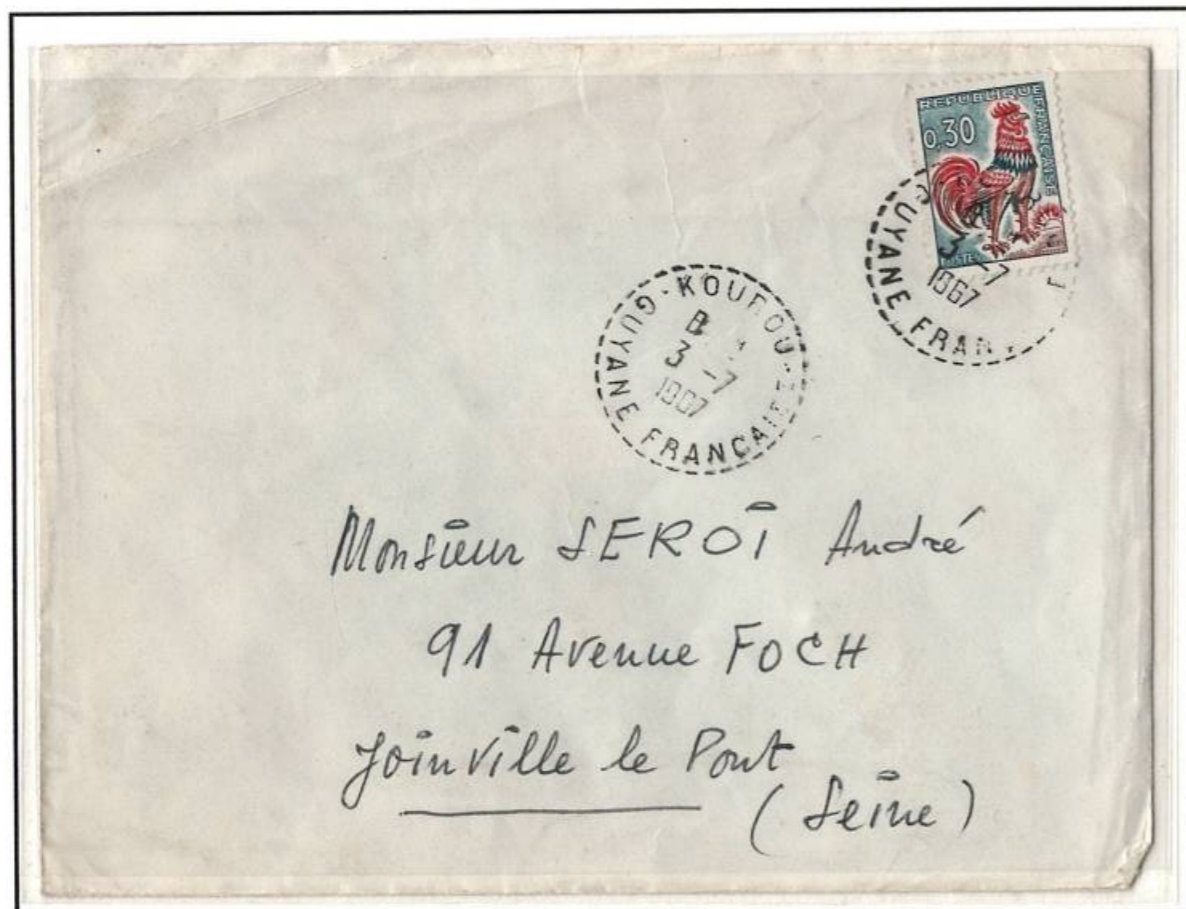 REPUBLIQUE FRANCAISE
0,30
POSTES
GUYANE FRAN
3 -7
1967
KOUROU
8
3 -7
1967
GUYANE FRANCAISE
Monsieur SEROI André
91 Avenue FOCH
Joinville le Pont
(Seine)